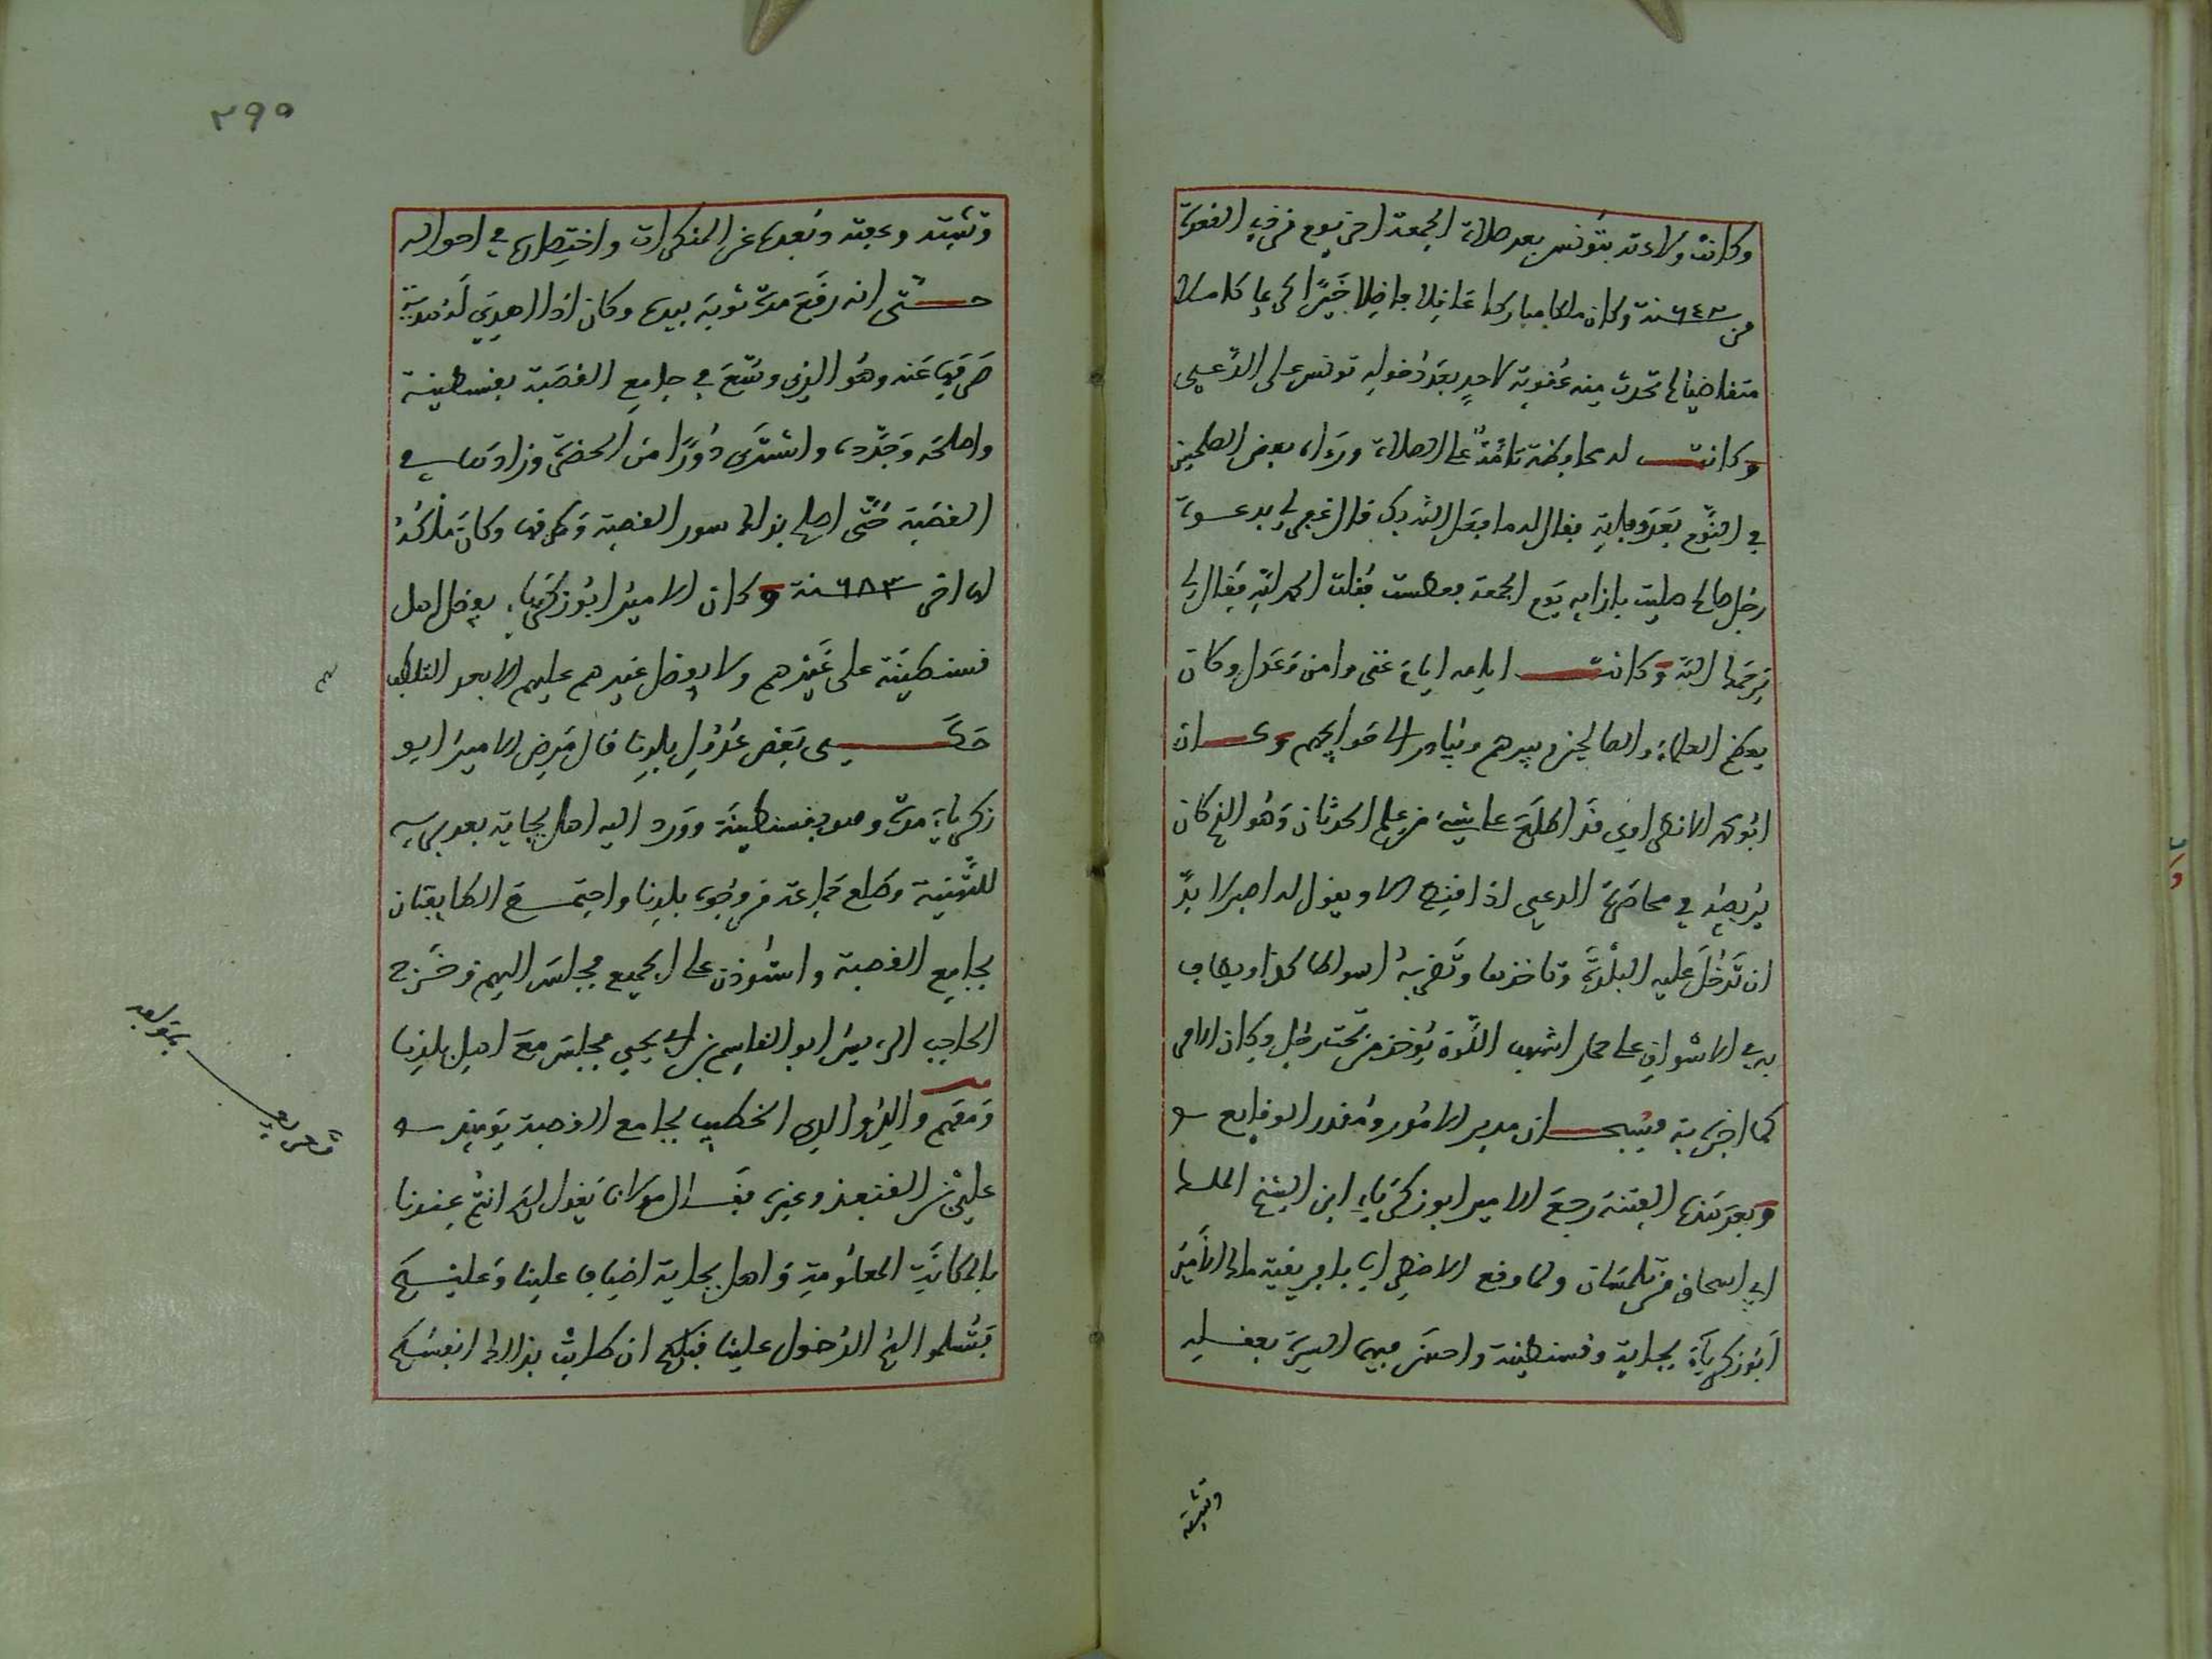 وكانت ولادته بتونس بعد صلاة الجمعة اخر يوم من ذي القعدة
من ٦٤٣ سنة وكان ملكا مباركا عاقلا فاضلا خيرا كاملا
متغاضيا لم تحدث منه عقوبة لاحد بعد دخوله تونس على الدعي
وكانت له محافظة تامة على الصلاة ورءاه بعض الصلحين
في النوم بعد وفاته فقال له ما فعل الله بك قال غفر لي بدعوة
رجل صالح صليت بازايه يوم الجمعة فعطست فقلت الحمد لله فقال لي
يرحمك الله وكانت ايامه ايام غنى وامن وعدل وكان
يعظم العلماء والصالحين ويبرهم ويبادر الى حوايجهم وكان
ابو الانصاوي قد اطلع على شيء من علم الحدثان وهو الذي كان
في محاضرة الدعي اذا ويقول له اصبر لا بد
ان تدخل عليه البلدة وتاخذها وتضربه اسواطا كذا ويطاف
به في الاسواق على حمار اشهب اللون يوخذ من تحت رجل وكان الامر
كما اخبر به وسبحان مدبر الامور ومقدر الوقايع
وبعد هذه الفتنة رجع الامير ابو زكرياء ابن الشيخ السلطان
ابي اسحاق من تلمسان ولما وقع الاضطراب بافريقية ملك الامير
ابو زكرياء بجاية وقسنطينة واحسن فيهما السيرة بعقله
وتثبته
٢٩٥
وتثبته وعفته وبعده عن المنكرات واختصاره في احواله
حتى انه رقع مرة ثوبه بيده وكان اذا اهدي له هدية
صرفها عنه وهو الذي وسع في جامع القصبة بقسنطينة
واصلحه وجدده واشترى دورا من الحضرة وزادها في
القصبة حتى اصلح بذلك سور القصبة وطرقها وكان ملكه
لها في ٦٨٣ سنة وكان الامير ابو زكرياء يفضل اهل
قسنطينة على غيرهم ولا يفضل غيرهم عليهم الا بعد التلطف
حكى بعض عدول بلدنا قال مرض الامير ابو
زكرياء مرة وهو بقسنطينة وورد اليه اهل بجاية بعد برءه
للتهنية وطلع جماعة من وجوه بلدنا واجتمع الطايفتان
بجامع القصبة واستوذن على الجميع فجلس اليهم وخرج
الحاجب الرييس ابو القاسم بن ابي يحيى فجلس مع اهل بلدنا
ومعهم والد والدي الخطيب بجامع القصبة يوميذ
علي بن القنفذ وغيره فقال مولانا يقول لكم انتم عندنا
بالمكانة المعلومة واهل بجاية اضياف علينا وعليكم
فتسلموا لهم الدخول علينا قبلكم ان طابت بذلك انفسكم